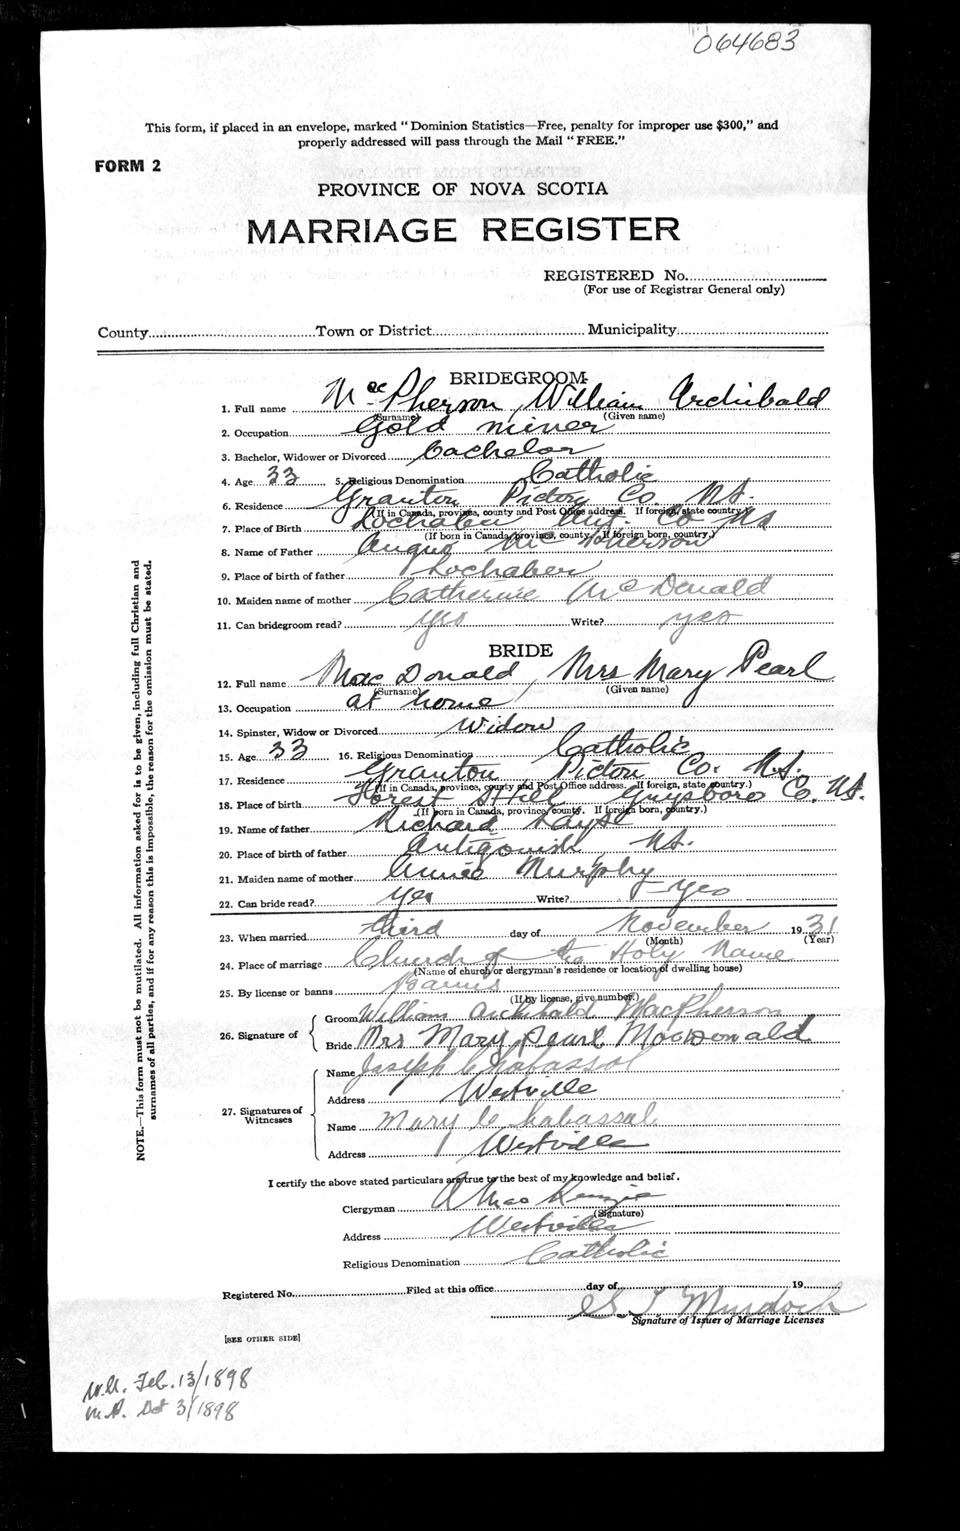 064683
This form, if placed in an envelope, marked "Dominion Statistics—Free, penalty for improper use $300," and
properly addressed will pass through the Mail "FREE."
FORM 2
PROVINCE OF NOVA SCOTIA
MARRIAGE REGISTER
REGISTERED No.
(For use of Registrar General only)
County Town or District Municipality
BRIDEGROOM
1. Full name MacPherson, William Archibald
(Surname) (Given name)
2. Occupation Gold miner
3. Bachelor, Widower or Divorced Bachelor
4. Age 33 5. Religious Denomination Catholic
6. Residence Granton Pictou Co NS.
(If in Canada, province, county and Post Office address. If foreign, state country.)
7. Place of Birth Lochaber Ant. Co NS
(If born in Canada, province, county. If foreign born, country.)
8. Name of Father Angus McPherson
9. Place of birth of father Lochaber
10. Maiden name of mother Catherine McDonald
11. Can bridegroom read? yes Write? yes
BRIDE
12. Full name MacDonald, Mrs Mary Pearl
(Surname) (Given name)
13. Occupation at home
14. Spinster, Widow or Divorced Widow
15. Age 33 16. Religious Denomination Catholic
17. Residence Granton Pictou Co. N.S.
(If in Canada, province, county and Post Office address. If foreign, state country.)
18. Place of birth Forest Hill Guysboro Co. NS.
(If born in Canada, province, county. If foreign born, country.)
19. Name of father Richard Hays
20. Place of birth of father Antigonish, NS.
21. Maiden name of mother Annie Murphy
22. Can bride read? Yes Write? Yes
23. When married third day of November 1931
(Month) (Year)
24. Place of marriage Church of the Holy Name
(Name of church or clergyman's residence or location of dwelling house)
25. By license or banns Banns
(If by license, give number.)
26. Signature of { Groom William Archibald MacPherson
Bride Mrs Mary Pearl MacDonald
27. Signatures of Witnesses { Name Joseph Chabassol
Address Westville
Name Mary C Chabassol
Address Westville
I certify the above stated particulars are true to the best of my knowledge and belief.
Clergyman A MacKenzie
(Signature)
Address Westville
Religious Denomination Catholic
Registered No. Filed at this office day of 19
G T Murdoch
Signature of Issuer of Marriage Licenses
[SEE OTHER SIDE]
W.A. Feb. 13/1898
M.P. Oct 3/1898
NOTE.—This form must not be mutilated. All information asked for is to be given, including full Christian and
surnames of all parties, and if for any reason this is impossible, the reason for the omission must be stated.